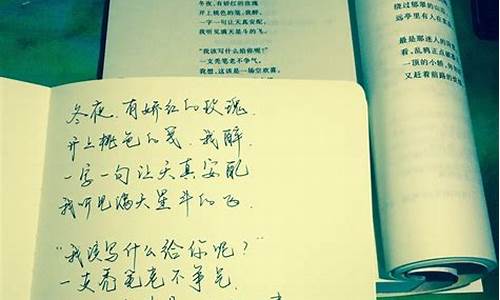 冬夜，有娇红的玫瑰
开上桃色的笺，我醉，
一字一句让天真安配，
我听见满天星斗的飞。
“我该写什么给你呢？”
一支秃笔老不争气，
我想，这该是一场空欢喜，
绕过郁翠的山
远亭里有人在
最是那迷人的
看，乱鸦正点破
一顶的小轿，
又赶着前路的
冬夜，有娇红的玫瑰
开上桃色的笺，我醉
一字一句让天真安配
我听见满天星斗的飞
“我该写什么给你呢？”
一支秃笔老不争气